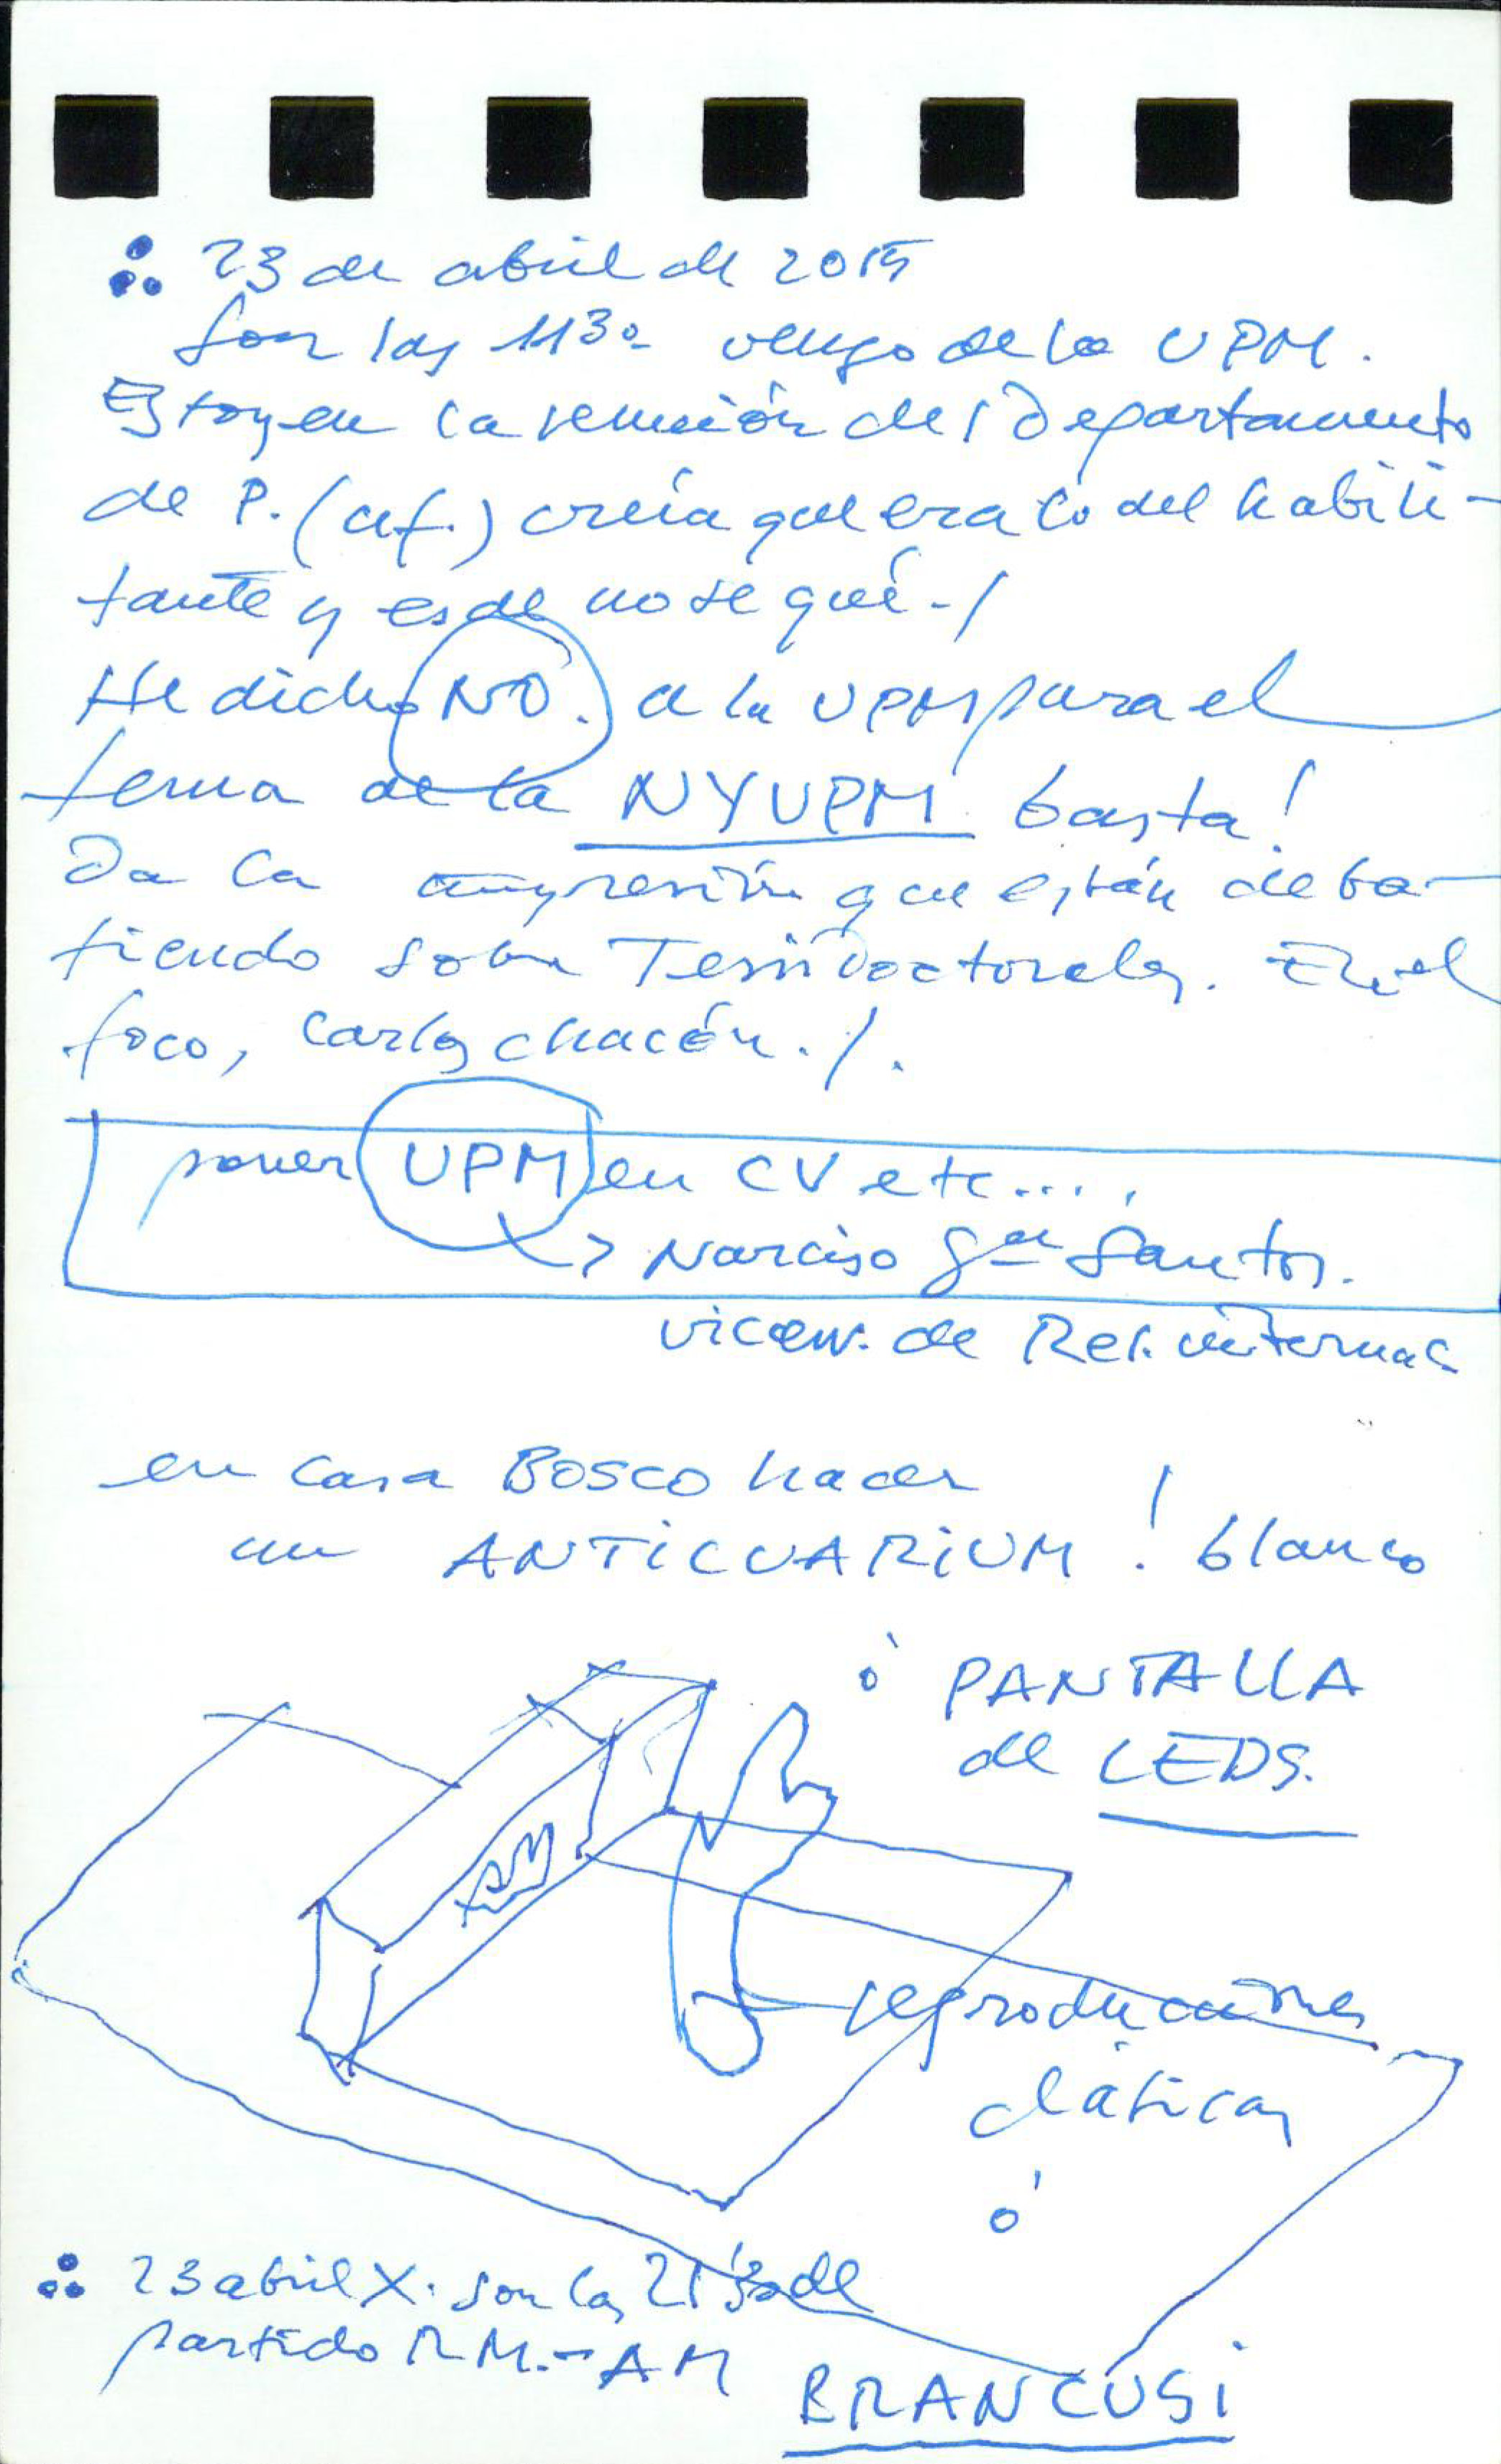 23 de abril de 2015
Son las 11³⁰ vengo de la UPM.
Estoy en la reunión del Departamento
de P. (arq.) creía que era lo del habili-
tante y es de no se qué./
He dicho NO. a la UPM para el
tema de la NYUPM basta!
Da la impresión que están deba-
tiendo sobre Tesis Doctorales. En el
foco, Carlos Chacón./.
poner UPM en CV etc....
> Narciso Gª Santos.
vicerr. de Rel. internac
en casa Bosco hacer
un ANTICUARIUM! blanco
ó PANTALLA
de LEDS.
reproducciones
clásicas
ó
23 abril X. son las 21'30 del
partido RM.-AM
BRANCUSI